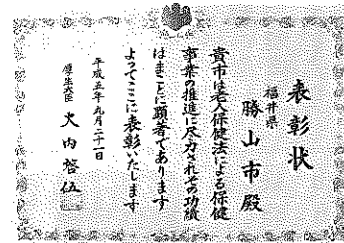 表彰状
福井県
勝山市殿
貴市は老人保健法による保健
事業の推進に尽力されその功績
はまことに顕著であります
よってここに表彰いたします
平成五年九月二十一日
厚生大臣 大内啓伍